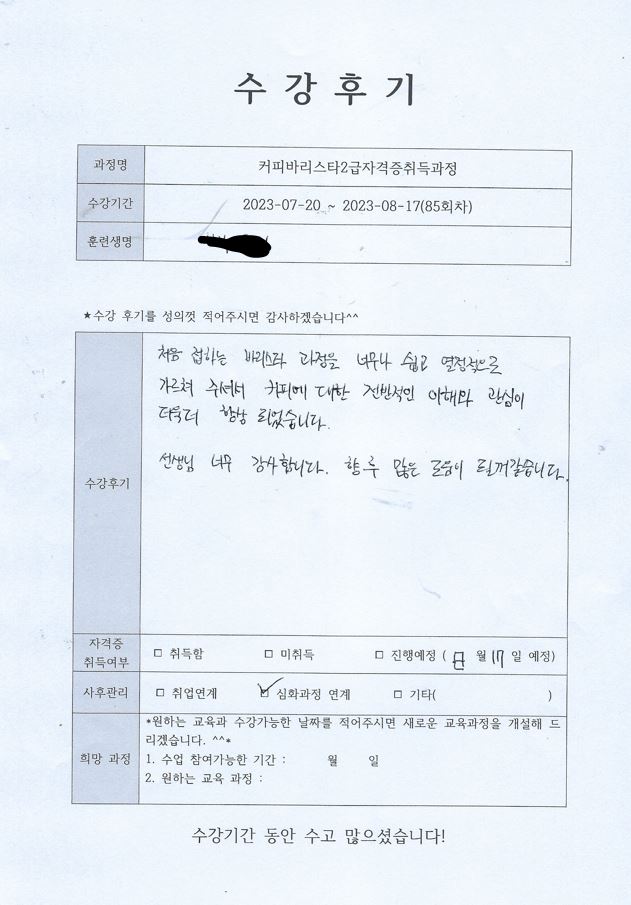 수강후기
과정명 커피바리스타2급자격증취득과정
수강기간 2023-07-20 ~ 2023-08-17(85회차)
훈련생명
★수강 후기를 성의껏 적어주시면 감사하겠습니다^^
처음 접하는 바리스타 과정을 너무나 쉽고 열정적으로
가르쳐 주셔서 커피에 대한 전반적인 이해와 관심이
더욱더 향상 되었습니다.
수강후기
선생님 너무 감사합니다. 향후 많은 도움이 될꺼같습니다.
자격증
취득여부
□ 취득함 □ 미취득 □ 진행예정 ( 월 17 일 예정)
사후관리 □ 취업연계 ☑ 심화과정 연계 □ 기타( )
*원하는 교육과 수강가능한 날짜를 적어주시면 새로운 교육과정을 개설해 드
리겠습니다. ^^*
희망 과정
1. 수업 참여가능한 기간 : 월 일
2. 원하는 교육 과정 :
수강기간 동안 수고 많으셨습니다!